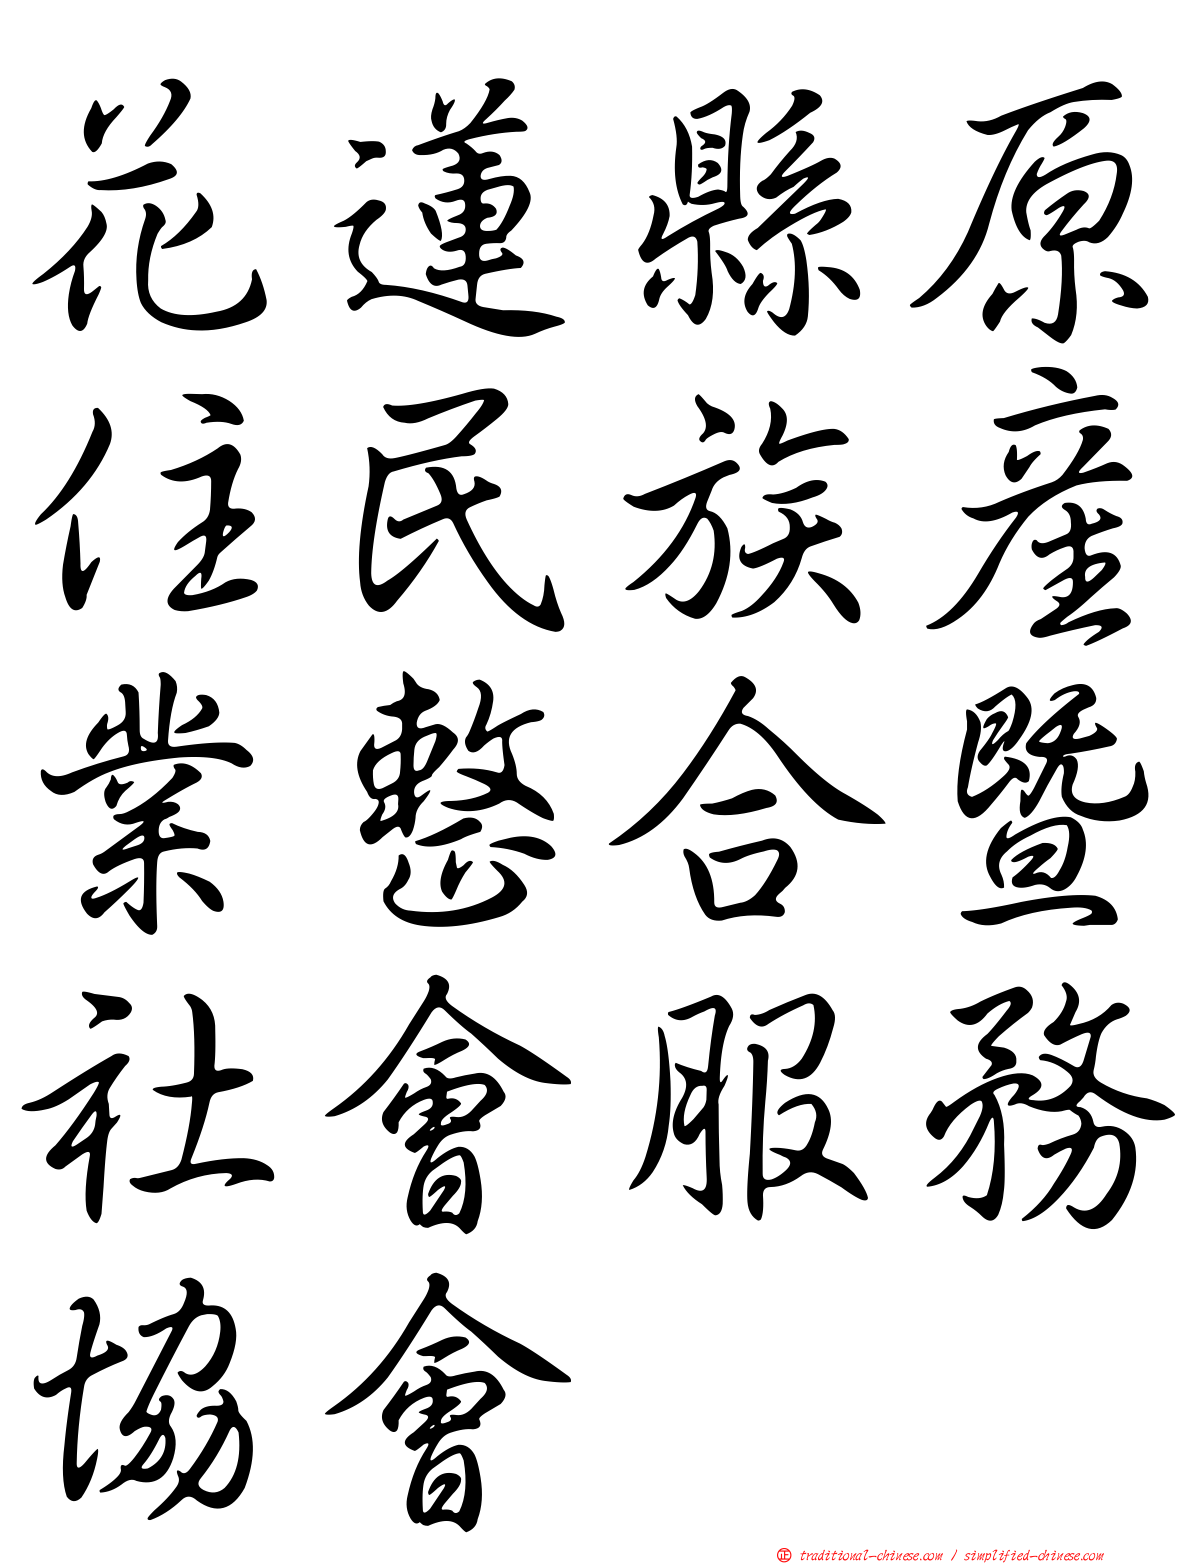 花蓮縣原
住民族產
業整合暨
社會服務
協會
㊣ traditional-chinese.com / simplified-chinese.com